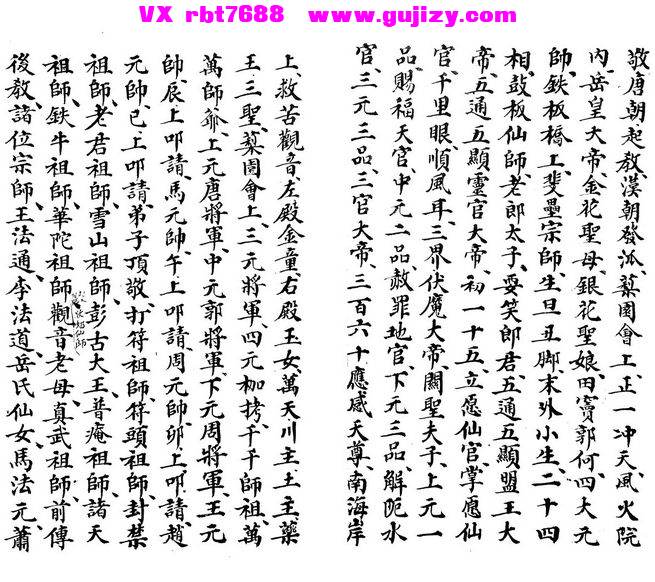 VX rbt7688 www.gujizy.com
敬唐朝起教漢朝發派、藥園會上、正一冲天風火院
內、岳皇大帝、金花聖母、銀花聖娘、田竇郭何四大元
師、鉄板橋上、斐墨宗師、生旦丑脚、末外小生、二十四
相、鼓板仙師、老郎太子、耍笑郎君、五通五顯盟王大
帝、五通五顯靈官大帝、初一十五、立愿仙官、掌愿仙
官、千里眼、順風耳、三界伏魔大帝關聖夫子、上元一
品賜福天官、中元二品赦罪地官、下元三品、解阨水
官、三元三品、三官大帝、三百六十應感天尊、南海岸
上、救苦觀音、左殿金童、右殿玉女、萬天川主土主藥
王三聖、藥園會上、三元將軍、四元枷拷、千千師祖、萬
萬師爺、上元唐將軍、中元郭將軍、下元周將軍、王元
帥、辰上叩請、馬元帥、午上叩請、周元帥、卯上叩請、趙
元帥、巳上叩請、弟子頂敬、打符祖師、符頭祖師、封禁
祖師、老君祖師、雪山祖師、彭古大王、普庵祖師、諸天
祖師、鉄牛祖師、華陀祖師、觀音老母、真武祖師、前傳
後教、諸位宗師、王法通、李法道、岳氏仙女、馬法元、蕭